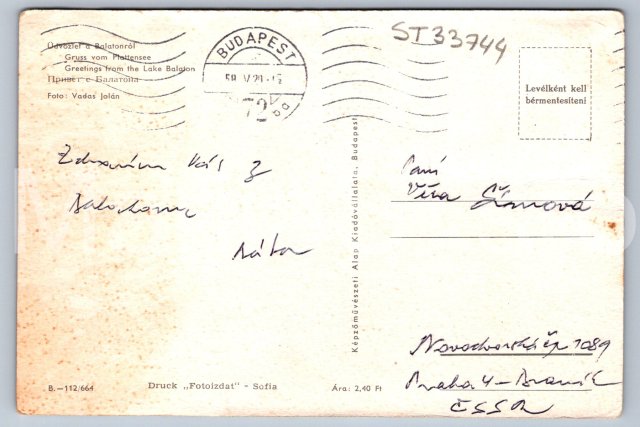 Üdvözlet a Balatonról
Gruss vom Plattensee
Greetings from the Lake Balaton
Привет с Балатона
Foto: Vadas Jolán
BUDAPEST
ST33744
Levélként kell
bérmentesíteni
Zdravím Vás z
Balatonu
Paní
Věra Šímová
Képzőművészeti Alap Kiadóvállalata, Budapest
Novodvorská čp 1089
Praha 4 - Braník
ČSSR
B.-112/664
Druck „Fotoizdat" - Sofia
Ára: 2,40 Ft